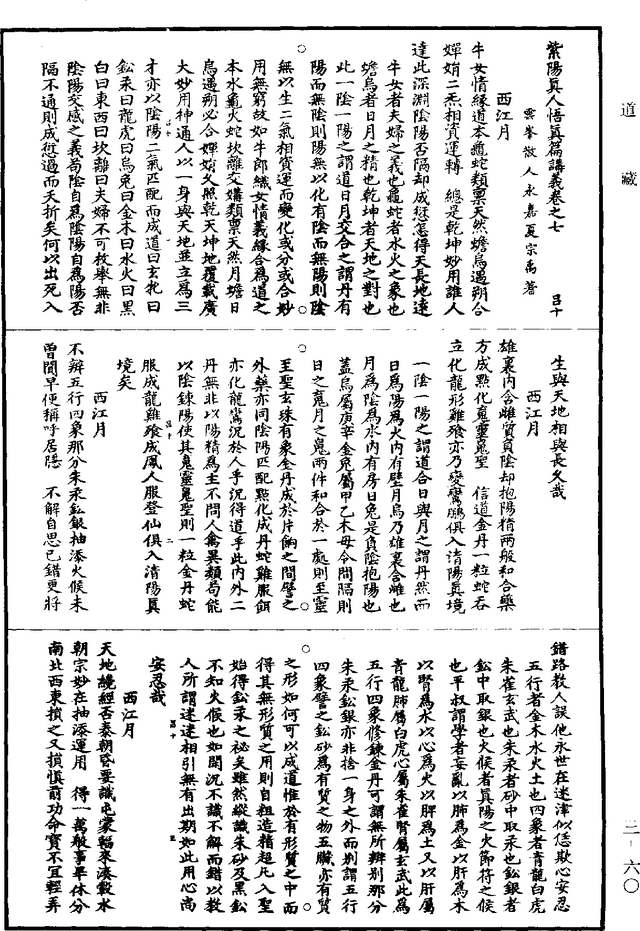 道藏
紫陽真人悟真篇講義卷之七
雲峯散人永嘉夏宗禹著
西江月
牛女情緣道本龜蛇類稟天然蟾烏遇朔合
嬋娟二炁相資運轉　總是乾坤妙用誰人
達此深淵陰陽否隔却成愆怎得天長地遠
牛女者夫婦之義也龜蛇者水火之象也
蟾烏者日月之精也乾坤者天地之對也
此一陰一陽之謂道日月交合之謂丹有
陽而無陰則陽無以化有陰而無陽則陰
無以生二氣相資運而變化或分或合妙
用無窮故如牛郎織女情義緣合為道之
本水龜火蛇坎離交媾類稟天然月蟾日
烏遇朔必合嬋娟久照乾天坤地覆載廣
大妙用神通人以一身與天地並立為三
才亦以陰陽二氣匹配而成道曰玄牝曰
鈆汞曰龍虎曰烏兔曰金木曰水火曰黑
白曰東西曰坎離曰夫婦不可枚舉無非
陰陽交感之義苟陰自為陰陽自為陽否
隔不通則成愆過而夭折矣何以出死入
生與天地相與長久哉
西江月
雄裏內含雌質負陰却抱陽精兩般和合藥
方成點化䰟靈魄聖　信道金丹一粒蛇吞
立化龍形雞飱亦乃變鸞鵬俱入清陽真境
一陰一陽之謂道合日與月之謂丹然而
日為陽為火內有壁月烏乃雄裏含雌也
月為陰為水內有房日兔是負陰抱陽也
蓋烏屬庚辛金兔屬甲乙木毋令間隔則
日之䰟月之魄兩件和合於一處則至靈
至聖玄珠有象金丹成於片餉之間譬之
外藥亦同陰陽匹配點化成丹蛇雞服餌
亦化龍鸞況於人乎況得道乎此內外二
丹無非以陽精為主不問人禽異類苟能
以陰鍊陽使其䰟靈魄聖則一粒金丹蛇
服成龍雞飱成鳳人服登仙俱入清陽真
境矣
西江月
不辨五行四象那分朱汞鈆銀抽添火候未
曾聞早便稱呼居隱　不解自思己錯更將
錯路教人誤他永世在迷津似恁欺心安忍
五行者金木水火土也四象者青龍白虎
朱雀玄武也朱汞者砂中取汞也鈆銀者
鈆中取銀也火候者真陽之火節符之候
也平叔謂學者妄亂以肺為金以肝為木
以腎為水以心為火以脾為土又以肝屬
青龍肺屬白虎心屬朱雀腎屬玄武此為
五行四象修鍊金丹可謂無所辨別那分
朱汞鈆銀亦非捨一身之外而別謂五行
四象譬之鈆砂為有質之物五臟亦有質
之形如何可以成道惟於有形質之中而
得其無形質之用則自粗造精超凡入聖
始得鈆汞之祕矣雖然縱識朱砂及黑鈆
不知火候也如閒況不識不解而錯以教
人所謂迷迷相引無有出期如此用心尚
安忍哉
西江月
天地纔經否泰朝昏要識屯蒙輻來湊轂水
朝宗妙在抽添運用　得一萬般事畢休分
南北西東損之又損慎前功命寶不宜輕弄
三‐六〇